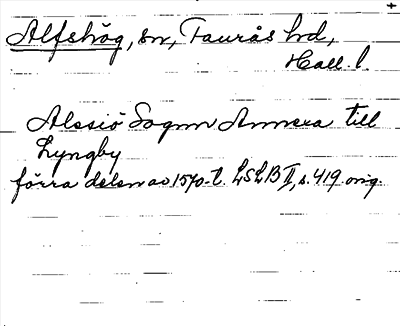 Alfshög, sn, Faurås hd,
Hall. l.
Alssiö Sognn Annexa till
Lyngby
förra delen av 1570-t. LSLB II, s. 419 orig.